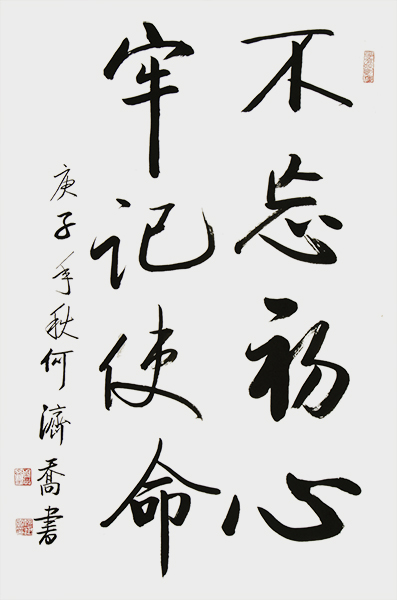 不忘初心
牢记使命
庚子年秋何濟喬書